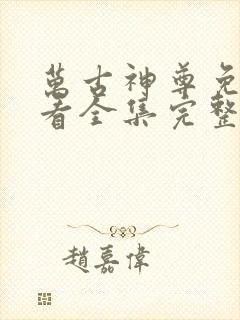 萬古神尊免
看全集完整
趙嘉偉